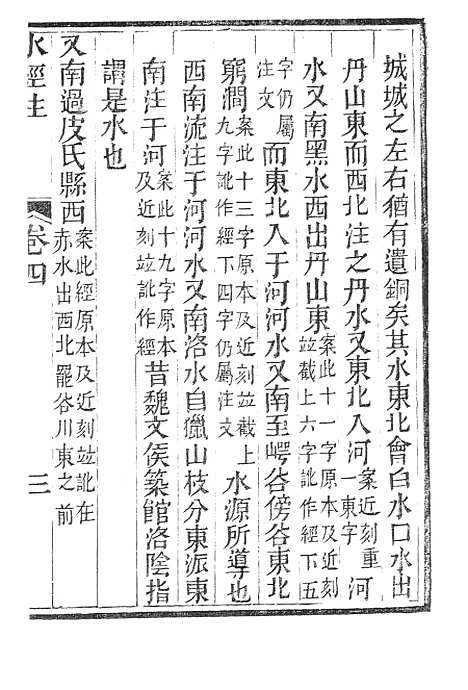 城城之左右猶有遺銅矣其水東北會白水口水出
丹山東而西北注之丹水又東北入河案近刻重一東字河
水又南黑水西出丹山東案此十一字原本及近刻竝截上六字訛作經下五
字仍屬注文而東北入于河河水又南至崿谷傍谷東北
窮澗案此十三字原本及近刻竝截上九字訛作經下四字仍屬注文水源所導也
西南流注于河河水又南洛水自獵山枝分東派東
南注于河案此十九字原本及近刻竝訛作經昔魏文侯築館洛陰指
謂是水也
又南過皮氏縣西案此經原本及近刻竝訛在赤水出西北罷谷川東之前
水經注
卷四
三